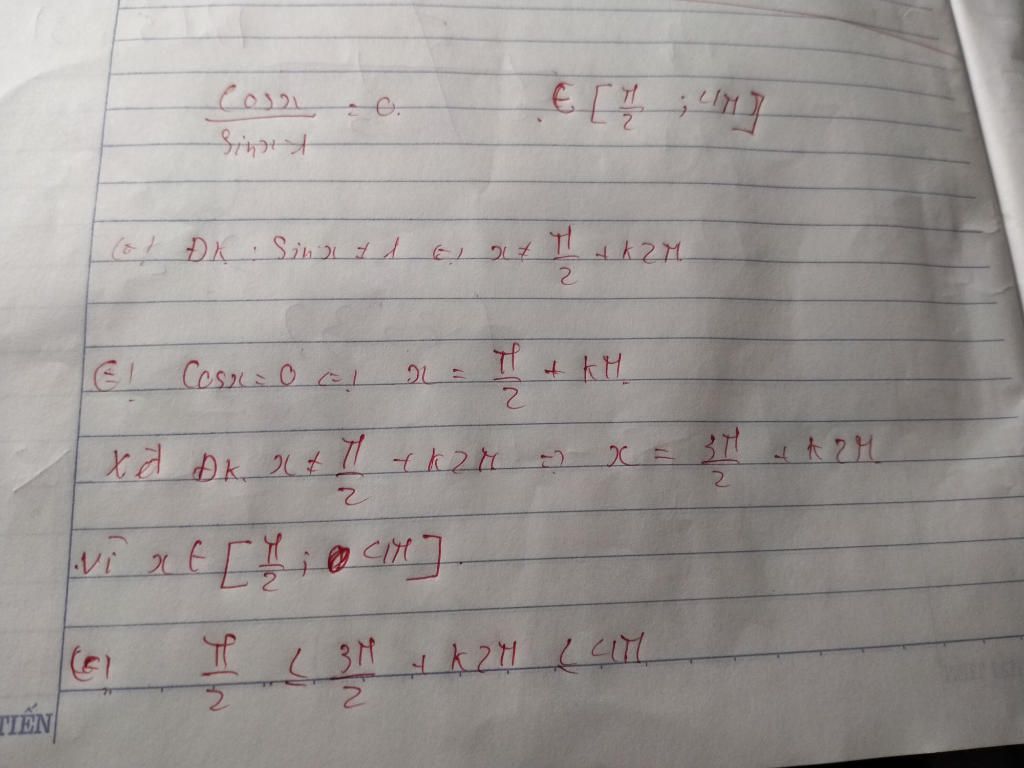 cosx / sinx-1 = 0. ∈ [π/2 ; 4π]
(=) ĐK : Sinx ≠ 1 (=) x ≠ π/2 + k2π
(=) Cosx = 0 (=) x = π/2 + kπ.
ĐK x ≠ π/2 + k2π => x = 3π/2 + k2π
.Vì x ∈ [π/2 ; 4π].
(=) π/2 ≤ 3π/2 + k2π ≤ 4π
TIẾN